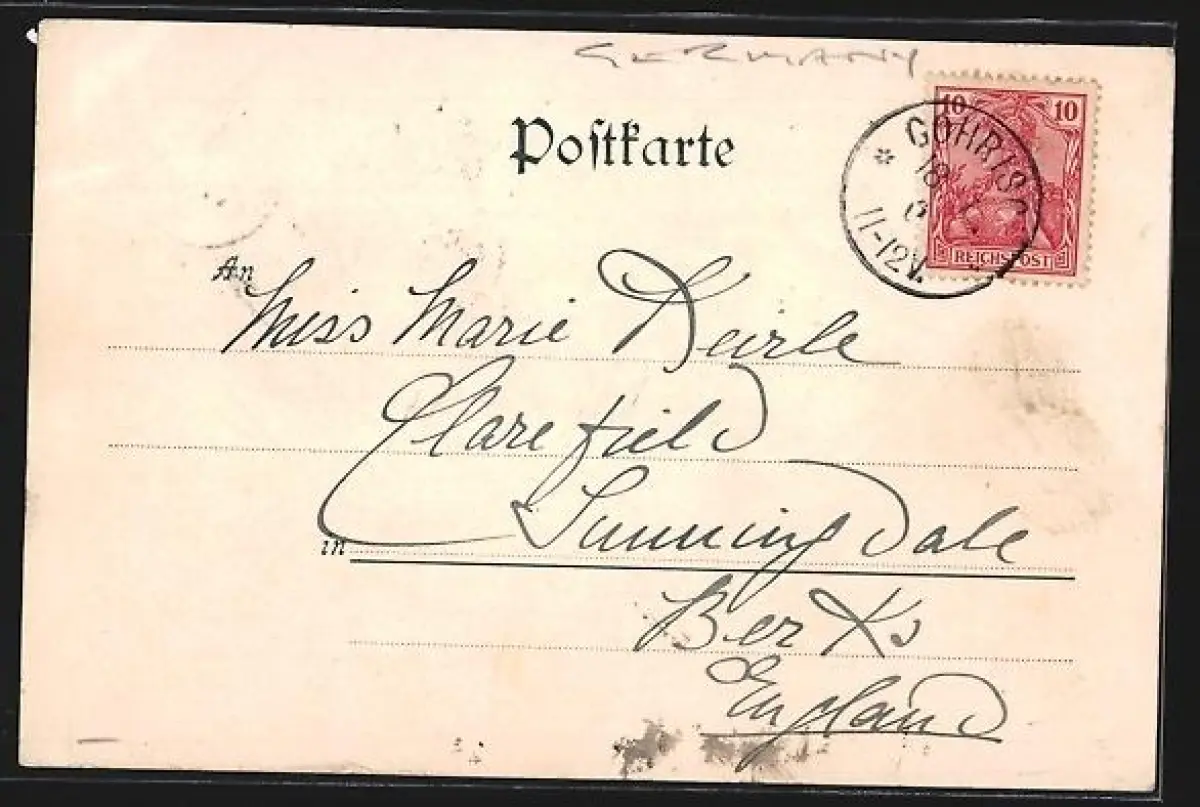 GERMANY
Postkarte
10 10
GOHRISC
18
11-12V.
REICHSPOST
An Miss Marie Deirle
Clarefield
in Sunningdale
Berks
England